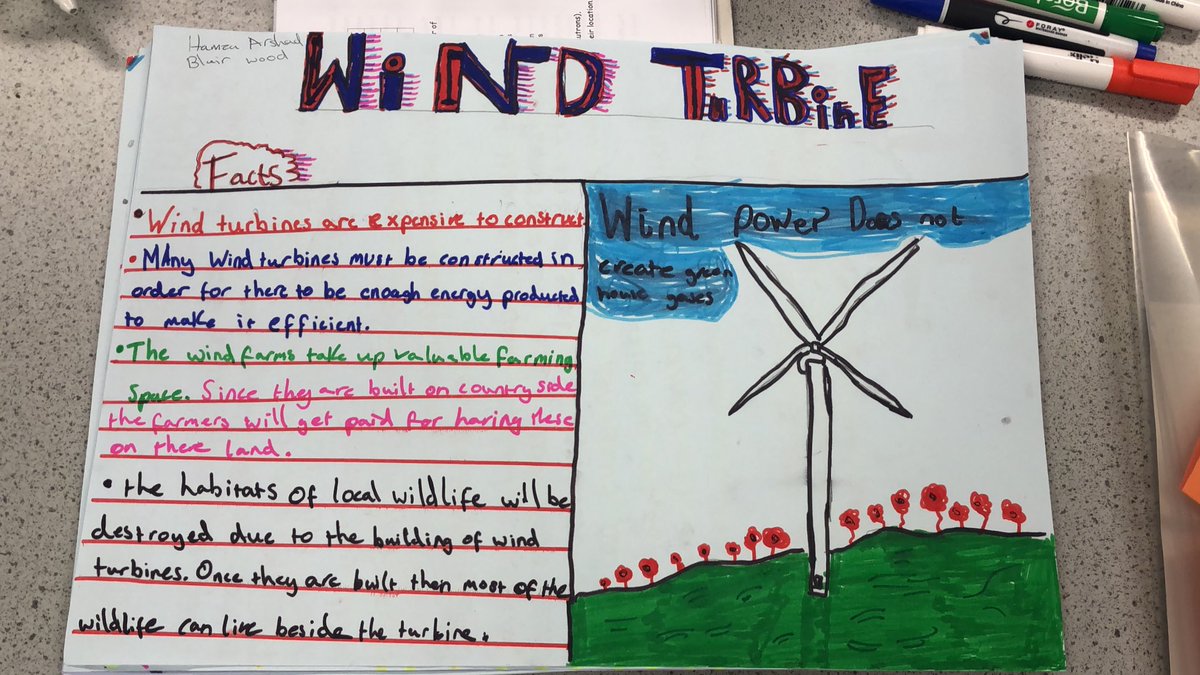 Hamza Arshad
Blair wood
WiND TuRBinE
Facts
• Wind turbines are expensive to construct.
• MAny Wind turbines must be constructed in
order for there to be enoagh energy producted
to make it efficient.
• The wind farms take up valuable farming
Space. Since they are built on country side
the farmers will get paid for having these
on there land.
• the habitats of local wildlife will be
destroyed due to the building of wind
turbines. Once they are built then most of the
wildlife can live beside the turbine.
Wind power Does not
create green
house gases
FORAY